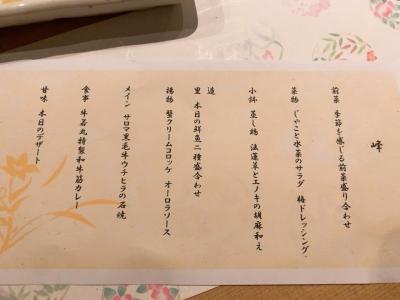 峰
前菜 季節を感じる前菜盛り合わせ
菜物 じゃこと水菜のサラダ 梅ドレッシング
小鉢 蒸し鶏 法蓮草とエノキの胡麻和え
造
里 本日の鮮魚二種盛合わせ
揚物 蟹クリームコロッケ オーロラソース
メイン サロマ黒毛牛ウチヒラの石焼
食事 牛若丸特製和牛筋カレー
甘味 本日のデザート